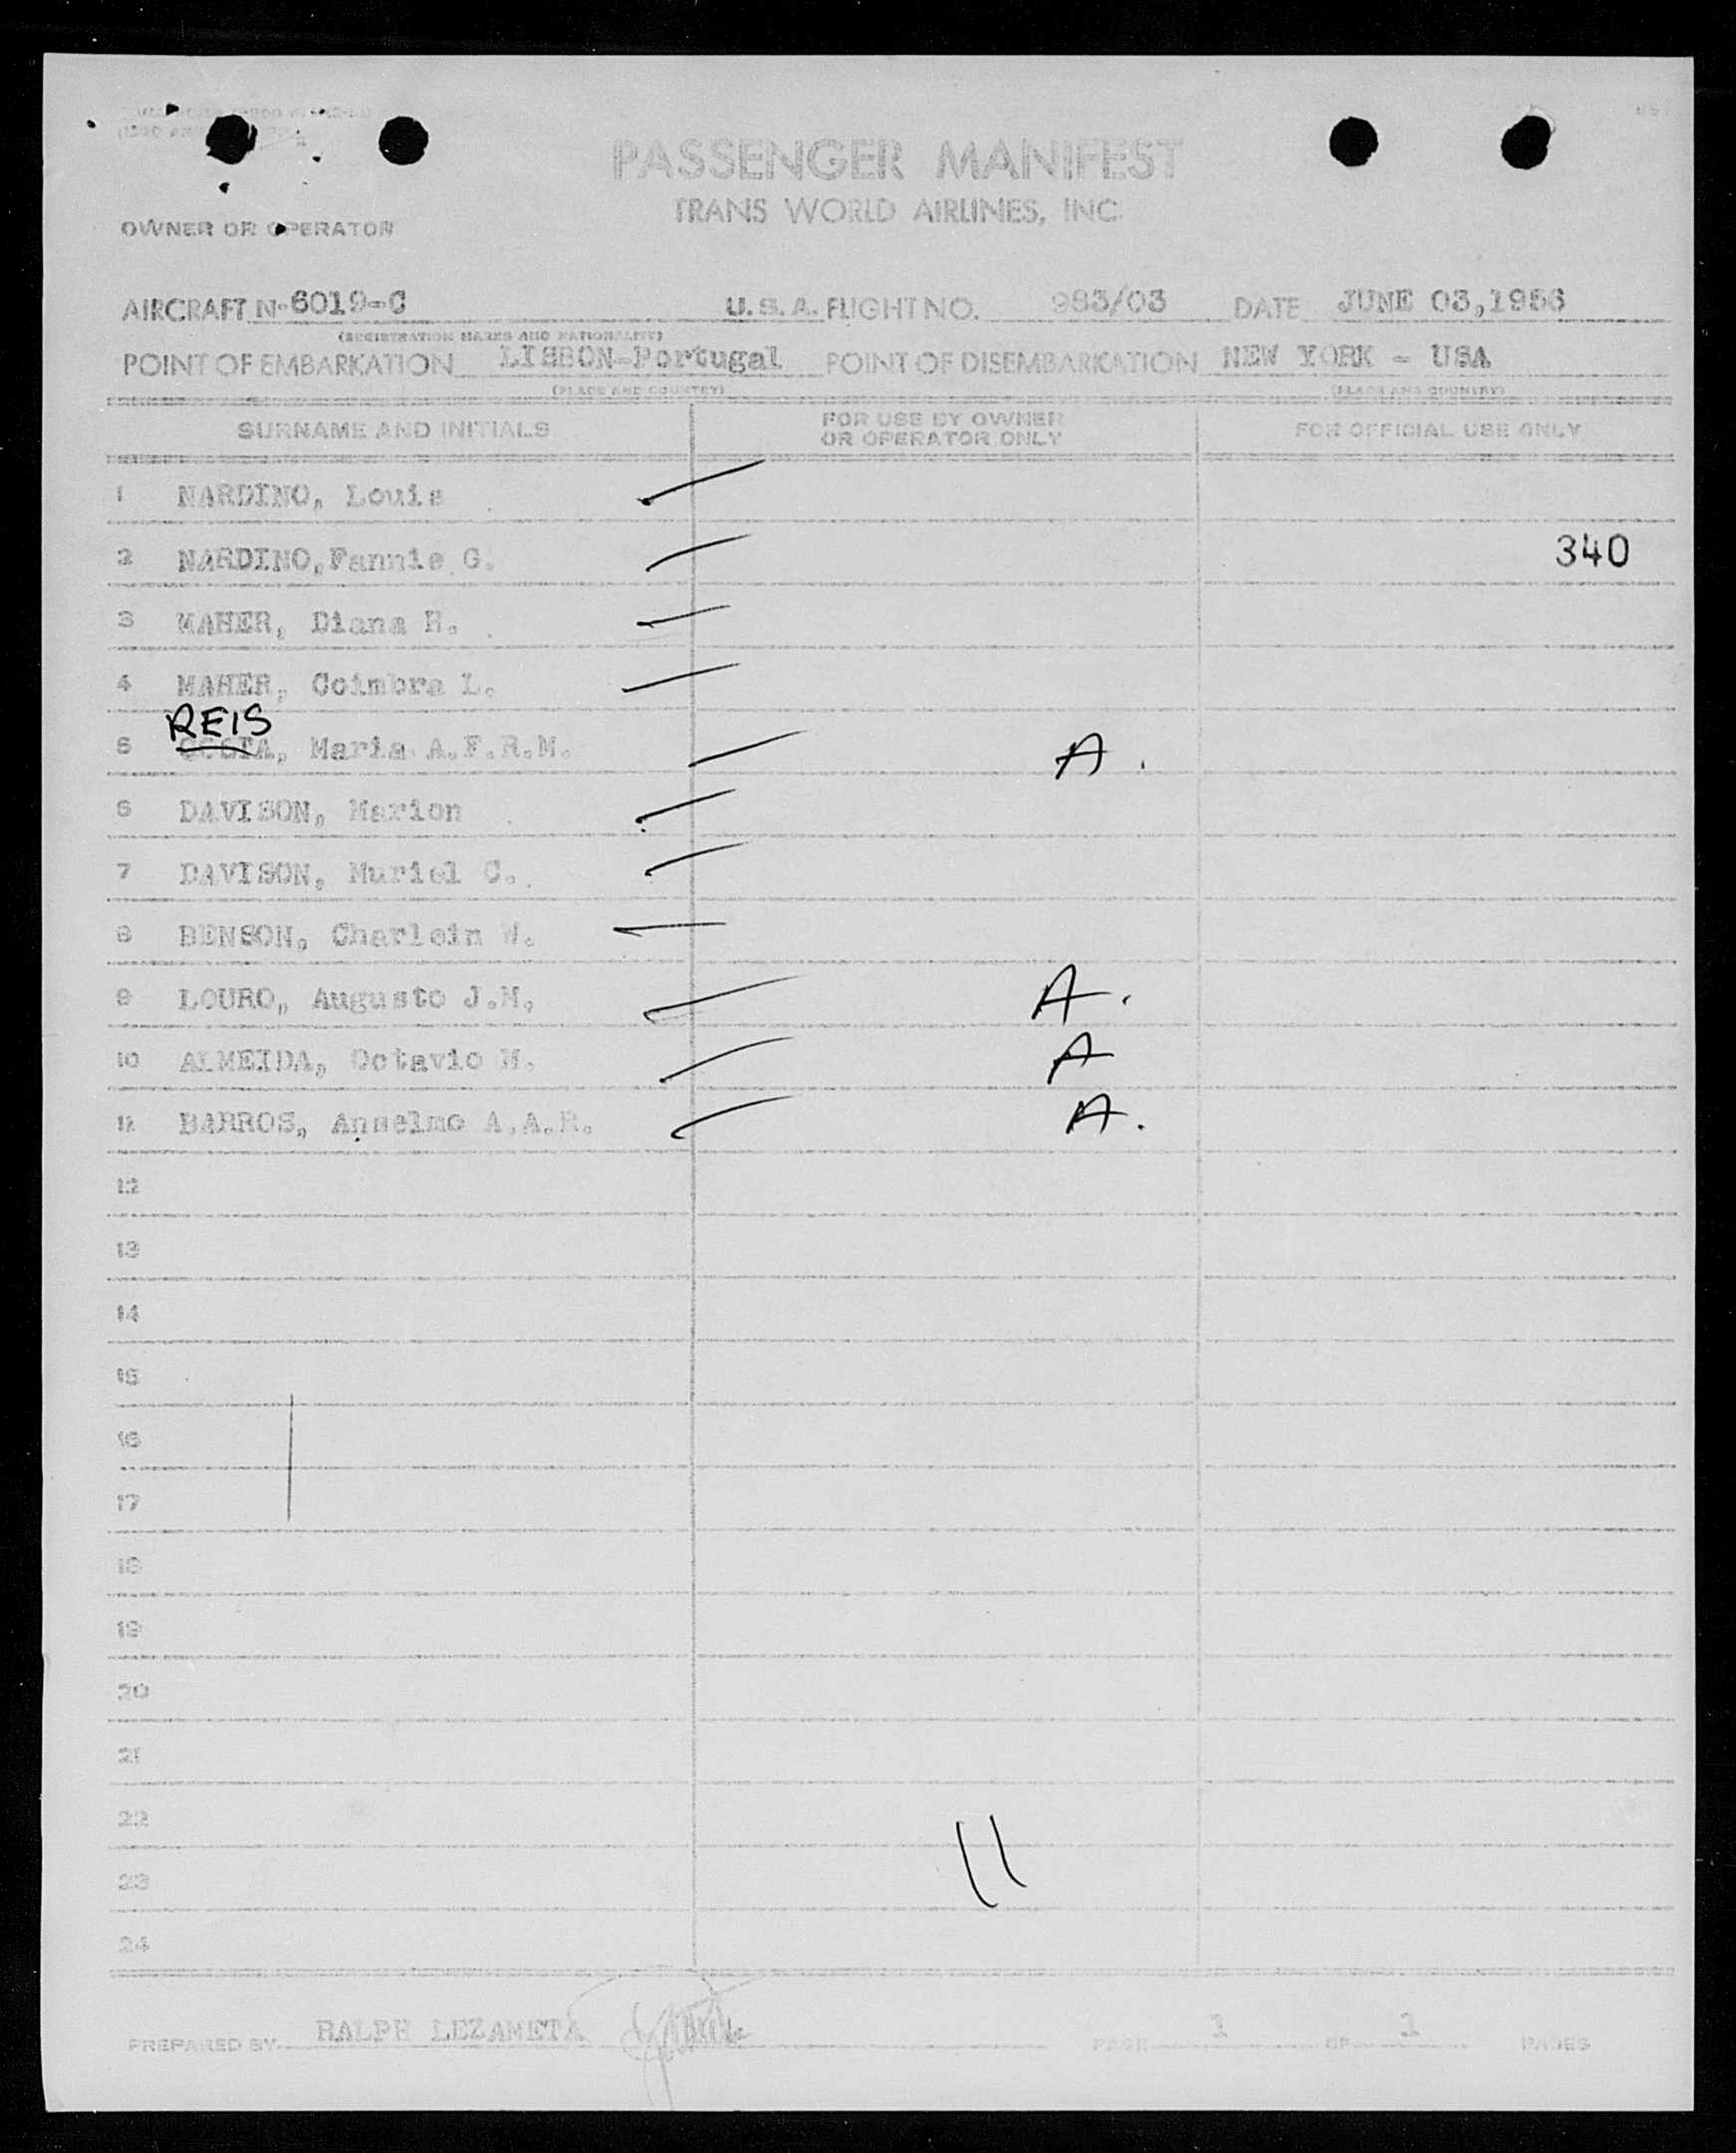 PASSENGER MANIFEST
TRANS WORLD AIRLINES, INC
OWNER OR OPERATOR
AIRCRAFT N-6019-C U.S.A. FLIGHT NO. 983/03 DATE JUNE 03,1956
(REGISTRATION MARKS AND NATIONALITY)
POINT OF EMBARKATION LISBON-Portugal POINT OF DISEMBARKATION NEW YORK - USA
(PLACE AND COUNTRY) (PLACE AND COUNTRY)
SURNAME AND INITIALS FOR USE BY OWNER OR OPERATOR ONLY FOR OFFICIAL USE ONLY
1 NARDINO, Louis
2 NARDINO, Fannie G. 340
3 MAHER, Diana H.
4 MAHER, Coimbra L.
REIS
5 COSTA, Maria A.F.R.M. A.
6 DAVISON, Marion
7 DAVISON, Muriel C.
8 BENSON, Charlein W.
9 LOURO, Augusto J.M. A.
10 ALMEIDA, Octavio M. A
11 BARROS, Anselmo A.A.R. A.
12
13
14
15
16
17
18
19
20
21
22
11
23
24
PREPARED BY RALPH LEZAMETA PAGE 1 OF 1 PAGES